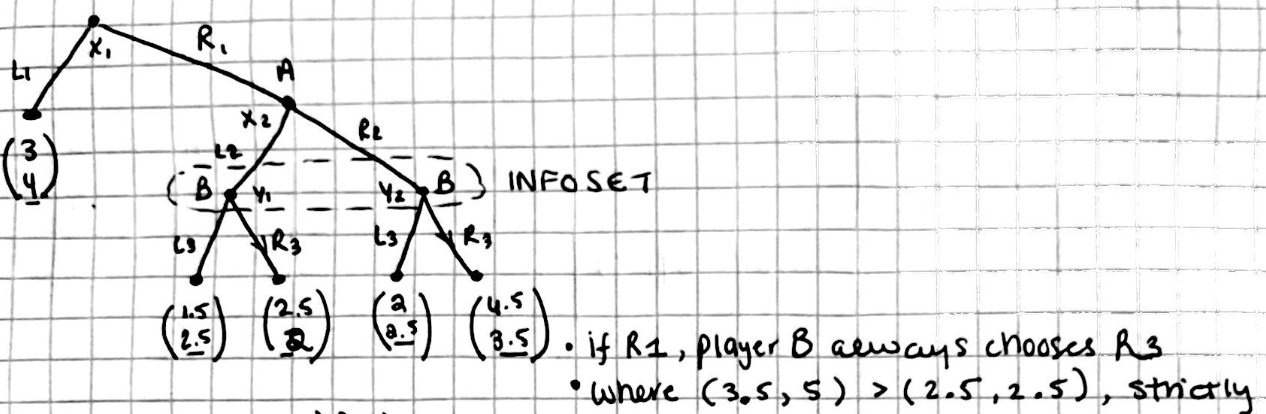 X₁
R₁
L1
A
X2
R2
(3
4)
L2
(B Y1 Y2 B) INFOSET
L3 R3 L3 R3
(1.5 2.5) (2.5 2) (2 2.5) (4.5 3.5)
• if R1, player B always chooses R3
• where (3.5, 5) > (2.5, 2.5), strictly